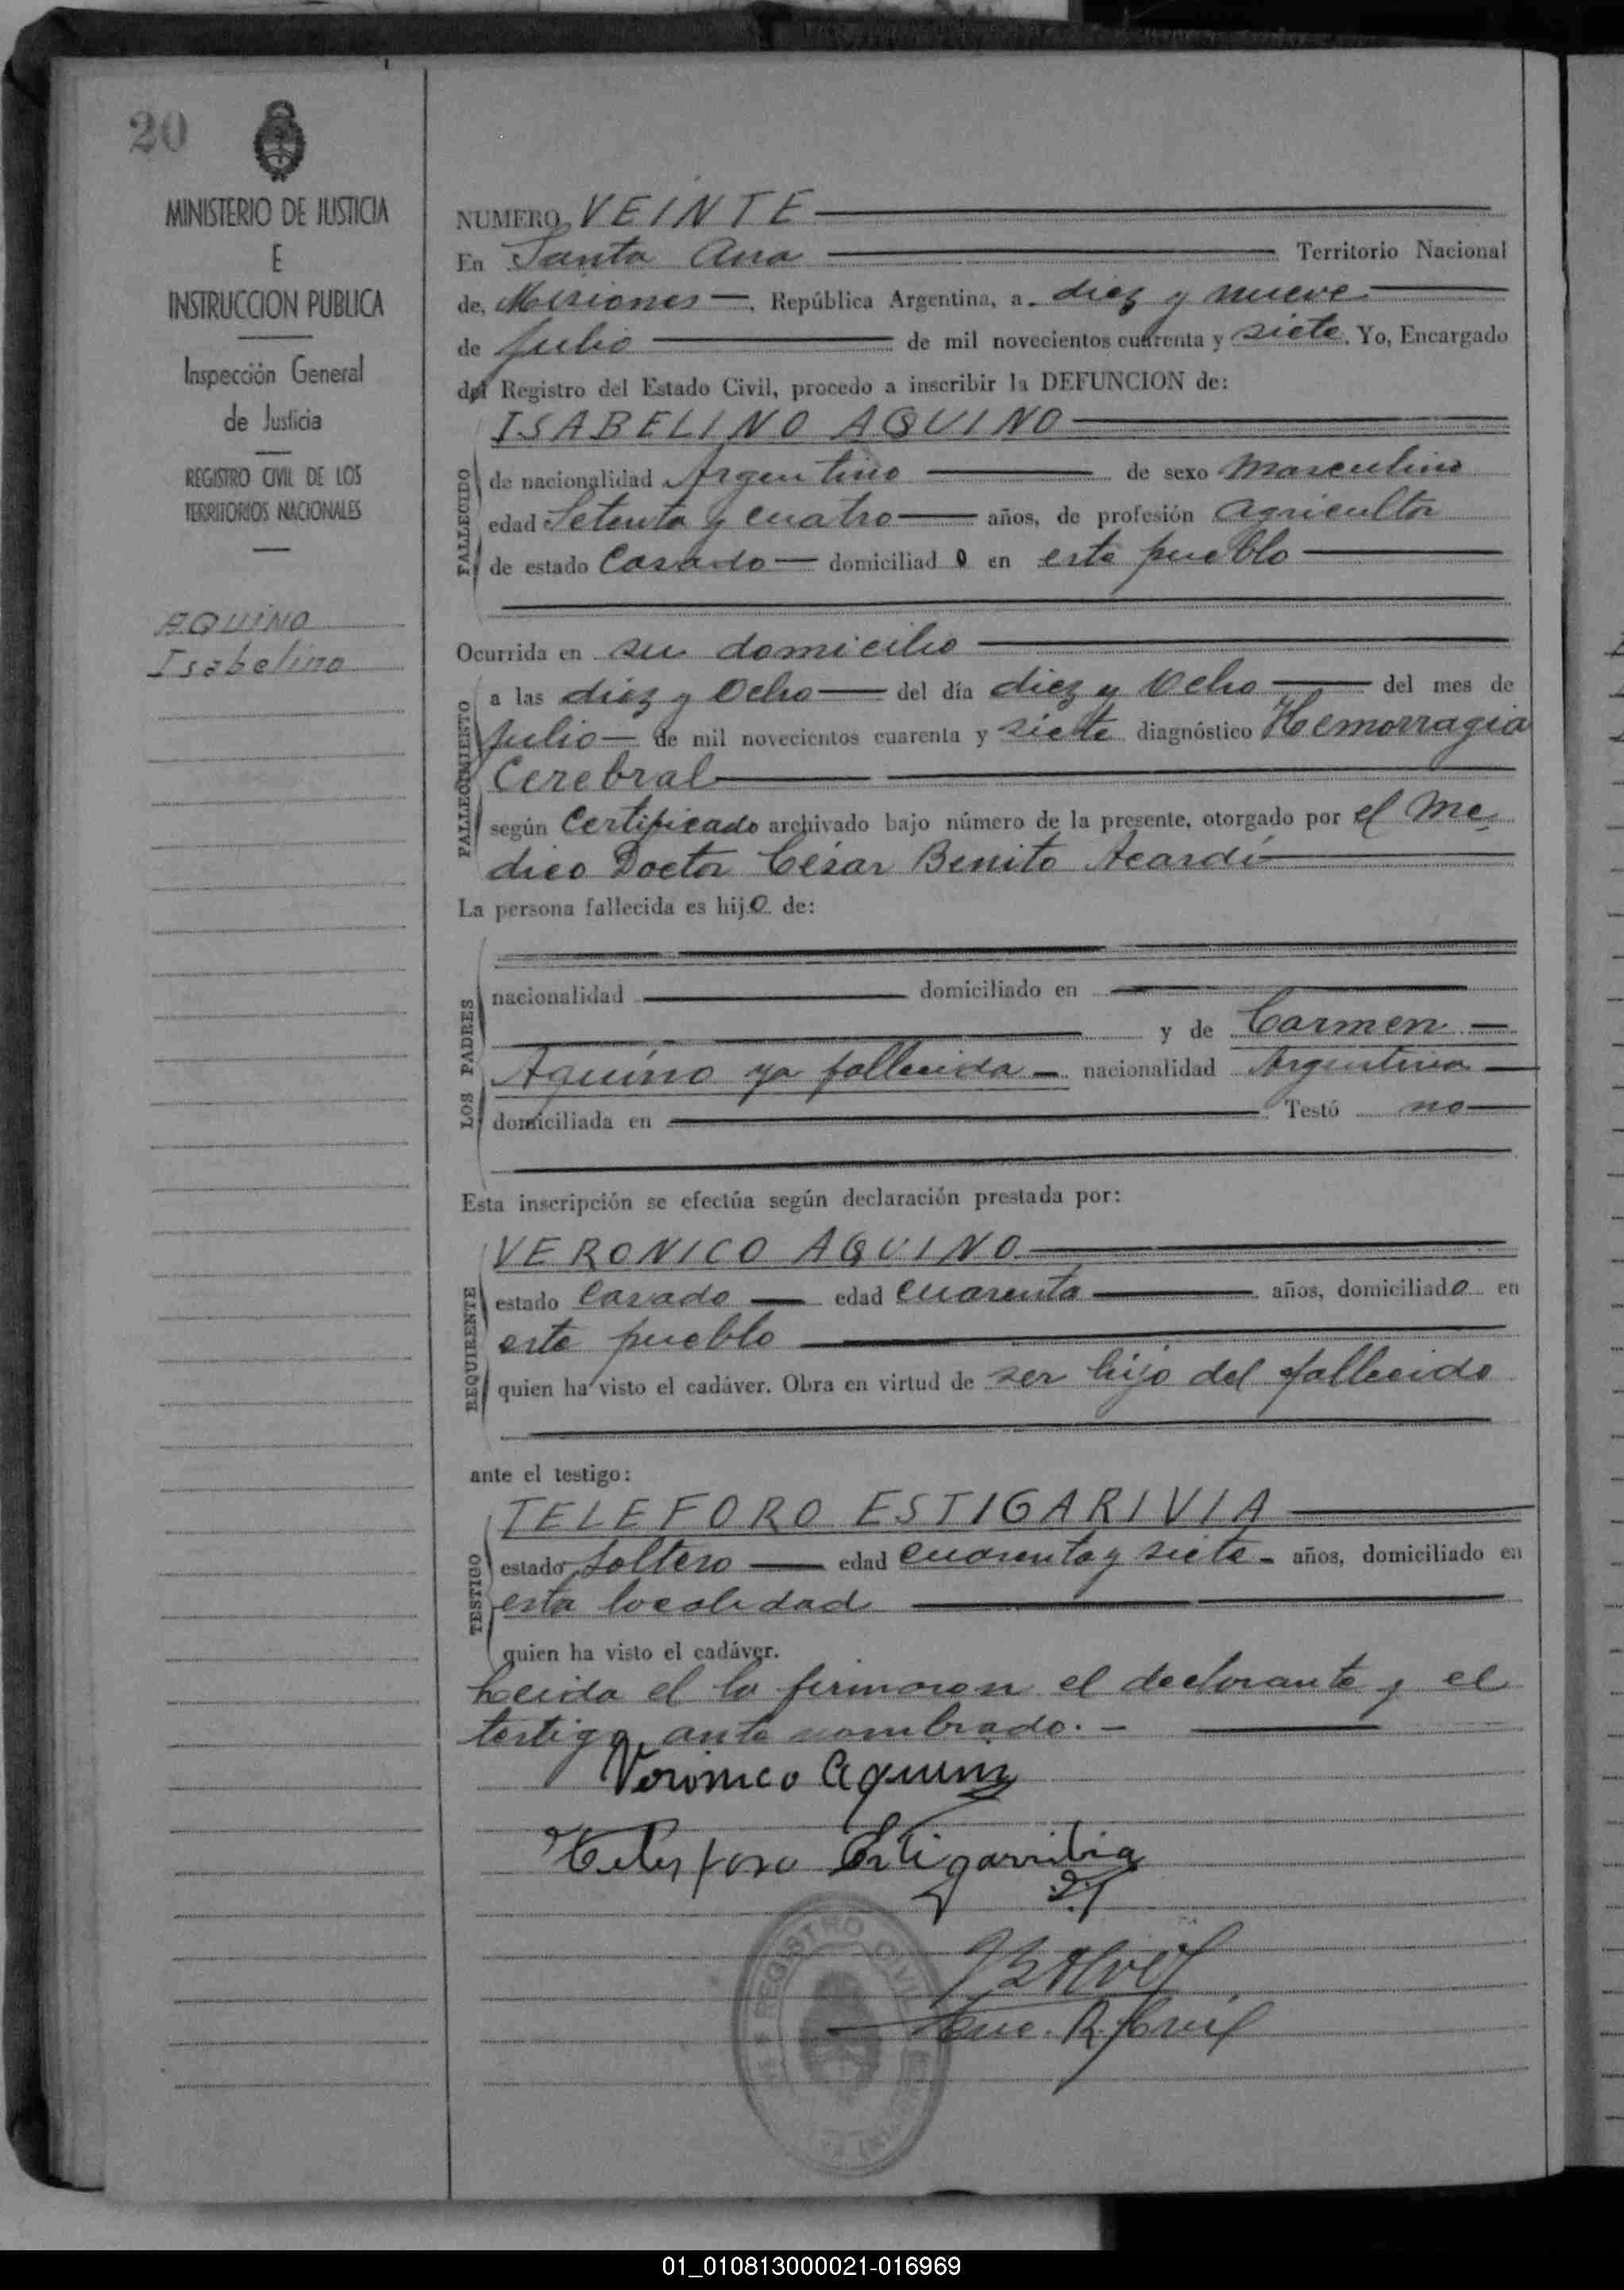 20
MINISTERIO DE JUSTICIA
E
INSTRUCCION PUBLICA
Inspección General
de Justicia
REGISTRO CIVIL DE LOS
TERRITORIOS NACIONALES
AQUINO
Isabelino
NUMERO VEINTE
En Santa Ana Territorio Nacional
de, Misiones, República Argentina, a diez y nueve
de Julio de mil novecientos cuarenta y siete. Yo, Encargado
del Registro del Estado Civil, procedo a inscribir la DEFUNCION de:
ISABELINO AQUINO
FALLECIDO
de nacionalidad Argentino de sexo masculino
edad Setenta y cuatro años, de profesión agricultor
de estado Casado domiciliado en este pueblo
Ocurrida en su domicilio
FALLECIMIENTO
a las diez y Ocho del día diez y Ocho del mes de
Julio de mil novecientos cuarenta y siete diagnóstico Hemorragia
Cerebral
según Certificado archivado bajo número de la presente, otorgado por el Me
dico Doctor César Benito Acardi
La persona fallecida es hijo de:
LOS PADRES
nacionalidad domiciliado en
y de Carmen
Aquino ya fallecida nacionalidad Argentina
domiciliada en Testó no
Esta inscripción se efectúa según declaración prestada por:
VERONICO AQUINO
REQUIRENTE
estado Casado edad cuarenta años, domiciliado en
este pueblo
quien ha visto el cadáver. Obra en virtud de ser hijo del fallecido
ante el testigo:
TELEFORO ESTIGARIVIA
TESTIGO
estado Soltero edad cuarenta y siete años, domiciliado en
esta localidad
quien ha visto el cadáver.
Leida el la firmaron el declarante y el
testigo ante nombrado. -
Veronico Aquino
Telesforo Estigarribia
Enc. R. Civil
REGISTRO CIVIL
01_010813000021-016969